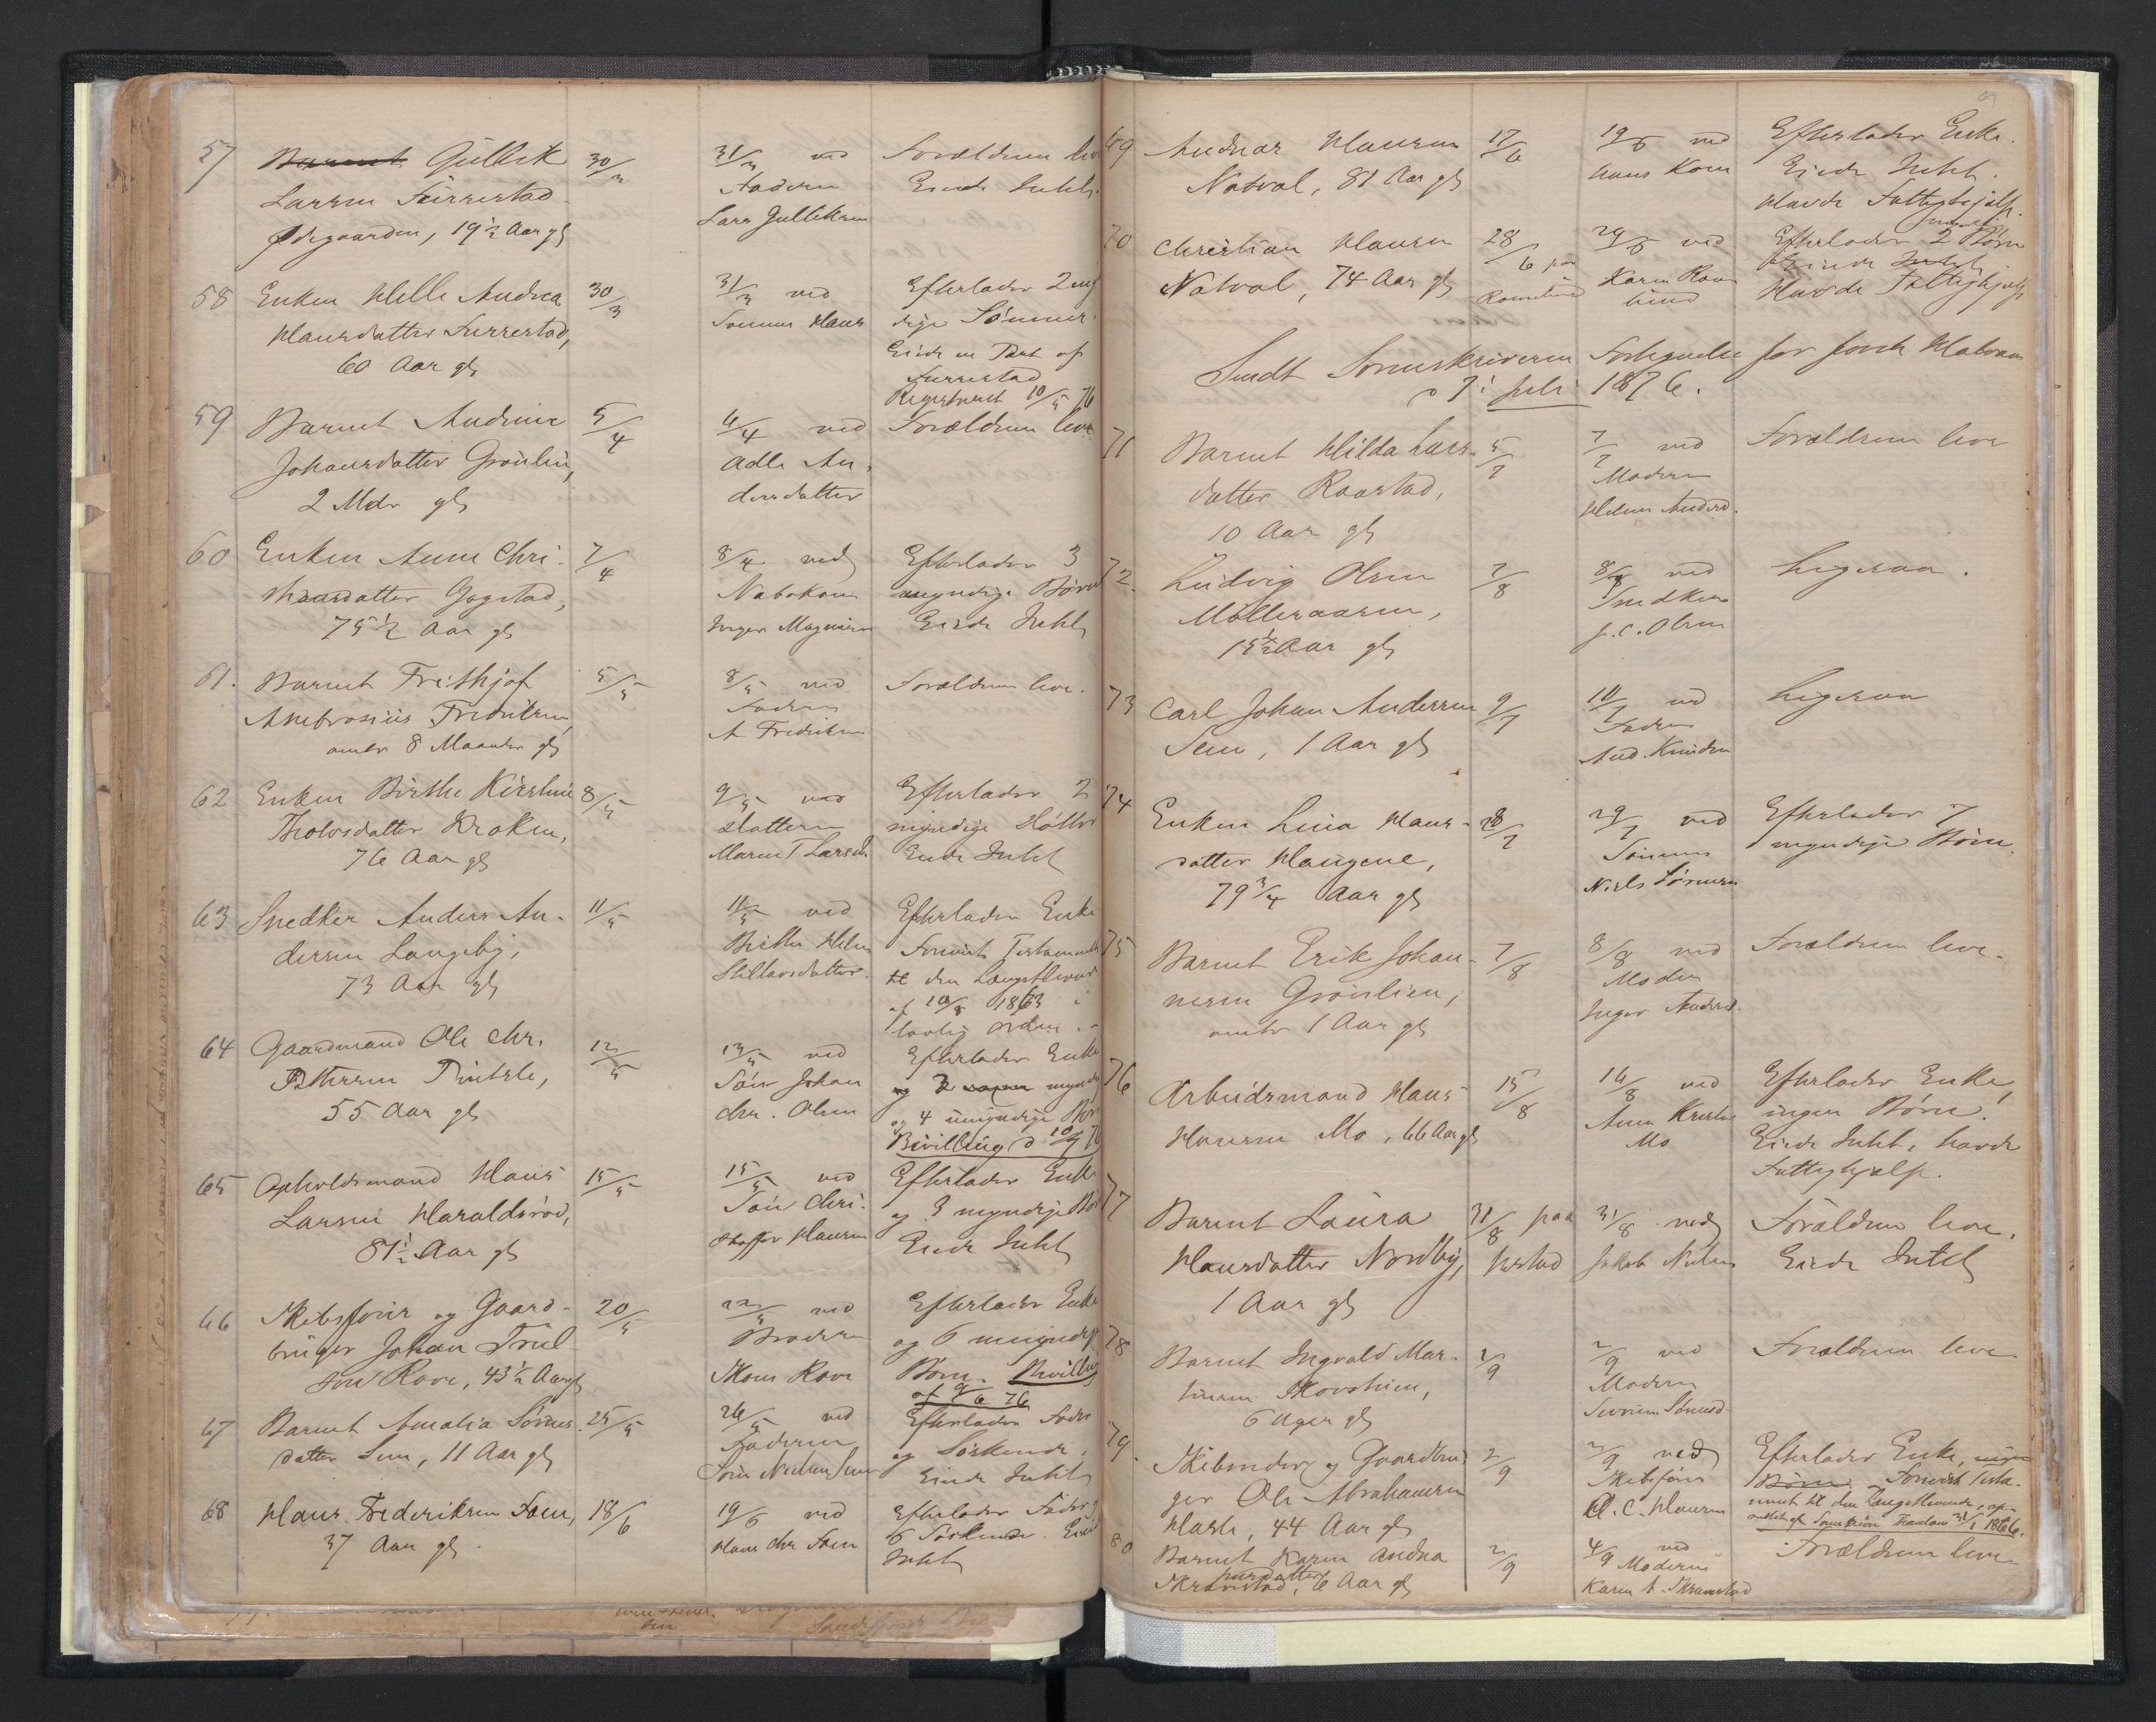 57 Barnet Gullik 30/3 31/3 ved Forældrene leve
Larsen Furrestad Faderen Eiede Intet.
Ødegaarden, 19½ Aar gl Lars Gulliksen
58 Enken Helle Andrea 30/3 31/3 ved Efterlader 2 myn
Hansdatter Furrestad, Sønnen Hans dige Sønner.
60 Aar gl Eiede en Part af
Furrestad
Registreret 10/5 76
59 Barnet Andrine 5/4 6/4 ved Forældrene leve
Johansdatter Grønlien, Adle An
2 Mdr gl dersdatter
60 Enken Anne Chri- 7/4 8/4 ved Efterlader 3
Gogstad, Nabokone myndige Børn
75½ Aar gl Inger Eiede Intet
61. Barnet Frithjof 5/5 8/5 ved Forældrene leve.
Ambrosius Fredriksen Faderen
omtr 8 Maaneder gl A Fredriksen
62 Enken Birthe Kirstine 8/5 9/5 ved Efterlader 2
Tholvsdatter Kroken, datteren myndige Døttre
76 Aar gl Maren T Larsd. Eiede Intet
63 Snedker Anders An- 11/5 11/5 ved Efterlader Enke
dersen Langeby, Birthe Helene Forevist Testamente
73 Aar gl til den Længstlevende
af 1863 i
lovlig Orden.
64 Gaardmand Ole Chr. 12/5 13/5 ved Efterlader Enke
Pettersen, Søn Johan og myndig
55 Aar gl Chr. Olsen og 4 umyndige Børn
Bevilling d
65 Opholdsmand Hans 15/5 15/5 ved Efterlader Enke
Larsen Haraldsrød, Søn Chri- og 3 myndige Børn
81½ Aar gl stoffer Hansen Eiede Intet
66 Skibsfører og Gaard- 20/5 22/5 ved Efterlader Enke
bruger Johan Truel Broderen og 6 umyndige
sen Rove, 43½ Aar gl Rove Børn. Bevilling
af 9/6 76
67 Barnet Amalia Sørens- 25/5 26/5 ved Efterlader Fader
datter Sem, 11 Aar gl Faderen og Søskende.
Søren Nielsen Sem Eiede Intet
68 Hans Frederiksen Foen, 18/6 19/6 ved Efterlader Fader og
37 Aar gl Hans Chr Foen 6 Søskende. Eiede
Intet
69 Andreas Hansen 17/6 19/6 ved Efterlader Enke.
Natval, 81 Aar gl Hans Kone Eiede Intet.
Havde Fattighjelp.
70 Christian Hansen 28/6 paa 29/6 ved Efterlader 2 Børn
Natval, 74 Aar gl Karen Eiede Intet
Havde Fattighjelp
Sendt Sorenskriveren Fortegnelse for første Halvaar
d 1 Juli 1876.
71 Barnet Hilda Lars- 5/7 7/7 ved Forældrene leve
datter Raastad, Moderen
10 Aar gl Helene Andersd.
72. Ludvig Olsen 7/8 8/8 ved Ligesaa.
Mølleraasen, Snedker
15½ Aar gl J. C. Olsen
73 Carl Johan Andersen 9/7 10/7 ved Ligesaa
Sem, 1 Aar gl Faderen
And. Knudsen
74 Enken Lina Hans- 28/7 29/7 ved Efterlader 7
datter Haugene, Sønnen myndige Børn.
79¾ Aar gl Niels Sørensen
75 Barnet Erik Johan- 7/8 8/8 ved Forældrene leve.
nesen Grønlien, Moderen
omtr 1 Aar gl Inger Andersd.
76 Arbeidsmand Hans 15/8 16/8 ved Efterlader Enke,
Hansen Mo, 66 Aar gl Anne Kirstine ingen Børn.
Mo Eiede Intet, havde
Fattighjælp.
77 Barnet Laura 31/8 paa 31/8 ved Forældrene leve.
Hansdatter Nordby, Jakob Nielsen Eiede Intet
1 Aar gl
78 Barnet Ingvald Mar- 2/9 2/9 ved Forældrene leve
tinsen Skovheim, Moderen
6 Uger gl
79. Skibsreder og Gaardbru 2/9 2/9 ved Efterlader Enke, ingen
ger Ole Abrahamsen Skibsfører Børn. Forevist Testa-
Hasle, 44 Aar gl H. C. Hansen ment til den Længstlevende, op-
31/1 1866.
80 Barnet Karen Andrea 2/9 4/9 ved Forældrene leve
Skravestad, 6 Aar gl Moderen
Karen A. Skravestad